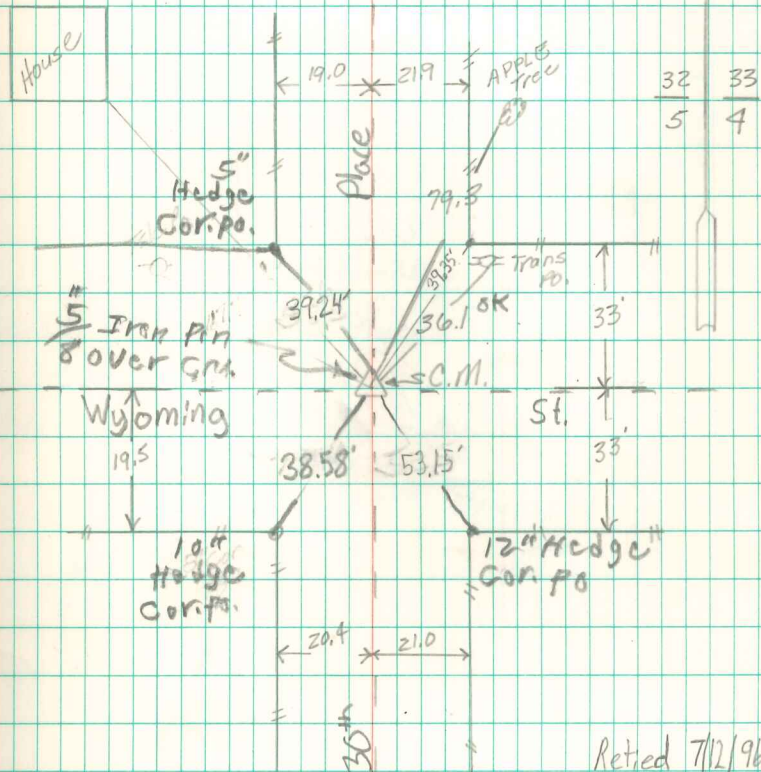 House
19.0
21.9
APPLE
tree
32
33
5
4
Place
5"
Hedge
Cor.po.
79.3
39.35'
Trans
Po.
39.24'
36.1
OK
33'
5"
8
Iron Pin
over Grd.
C.M.
Wyoming
St.
19.5
33'
38.58'
53.15'
10"
Hedge
Cor.po.
12" Hedge
Cor. po
20.4
21.0
30th
Retied 7/12/96